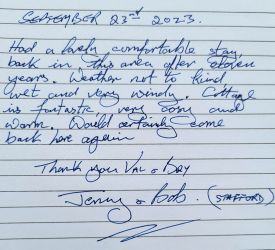 SEPTEMBER 23rd 2023.
Had a lovely comfortable stay,
back in this area after eleven
years. Weather not to kind
wet and very windy. Cottage
is fantastic, very cosy and
warm. Would certainly come
back here again
Thank you Val & Bry
Jenny & Bob. (STAFFORD)